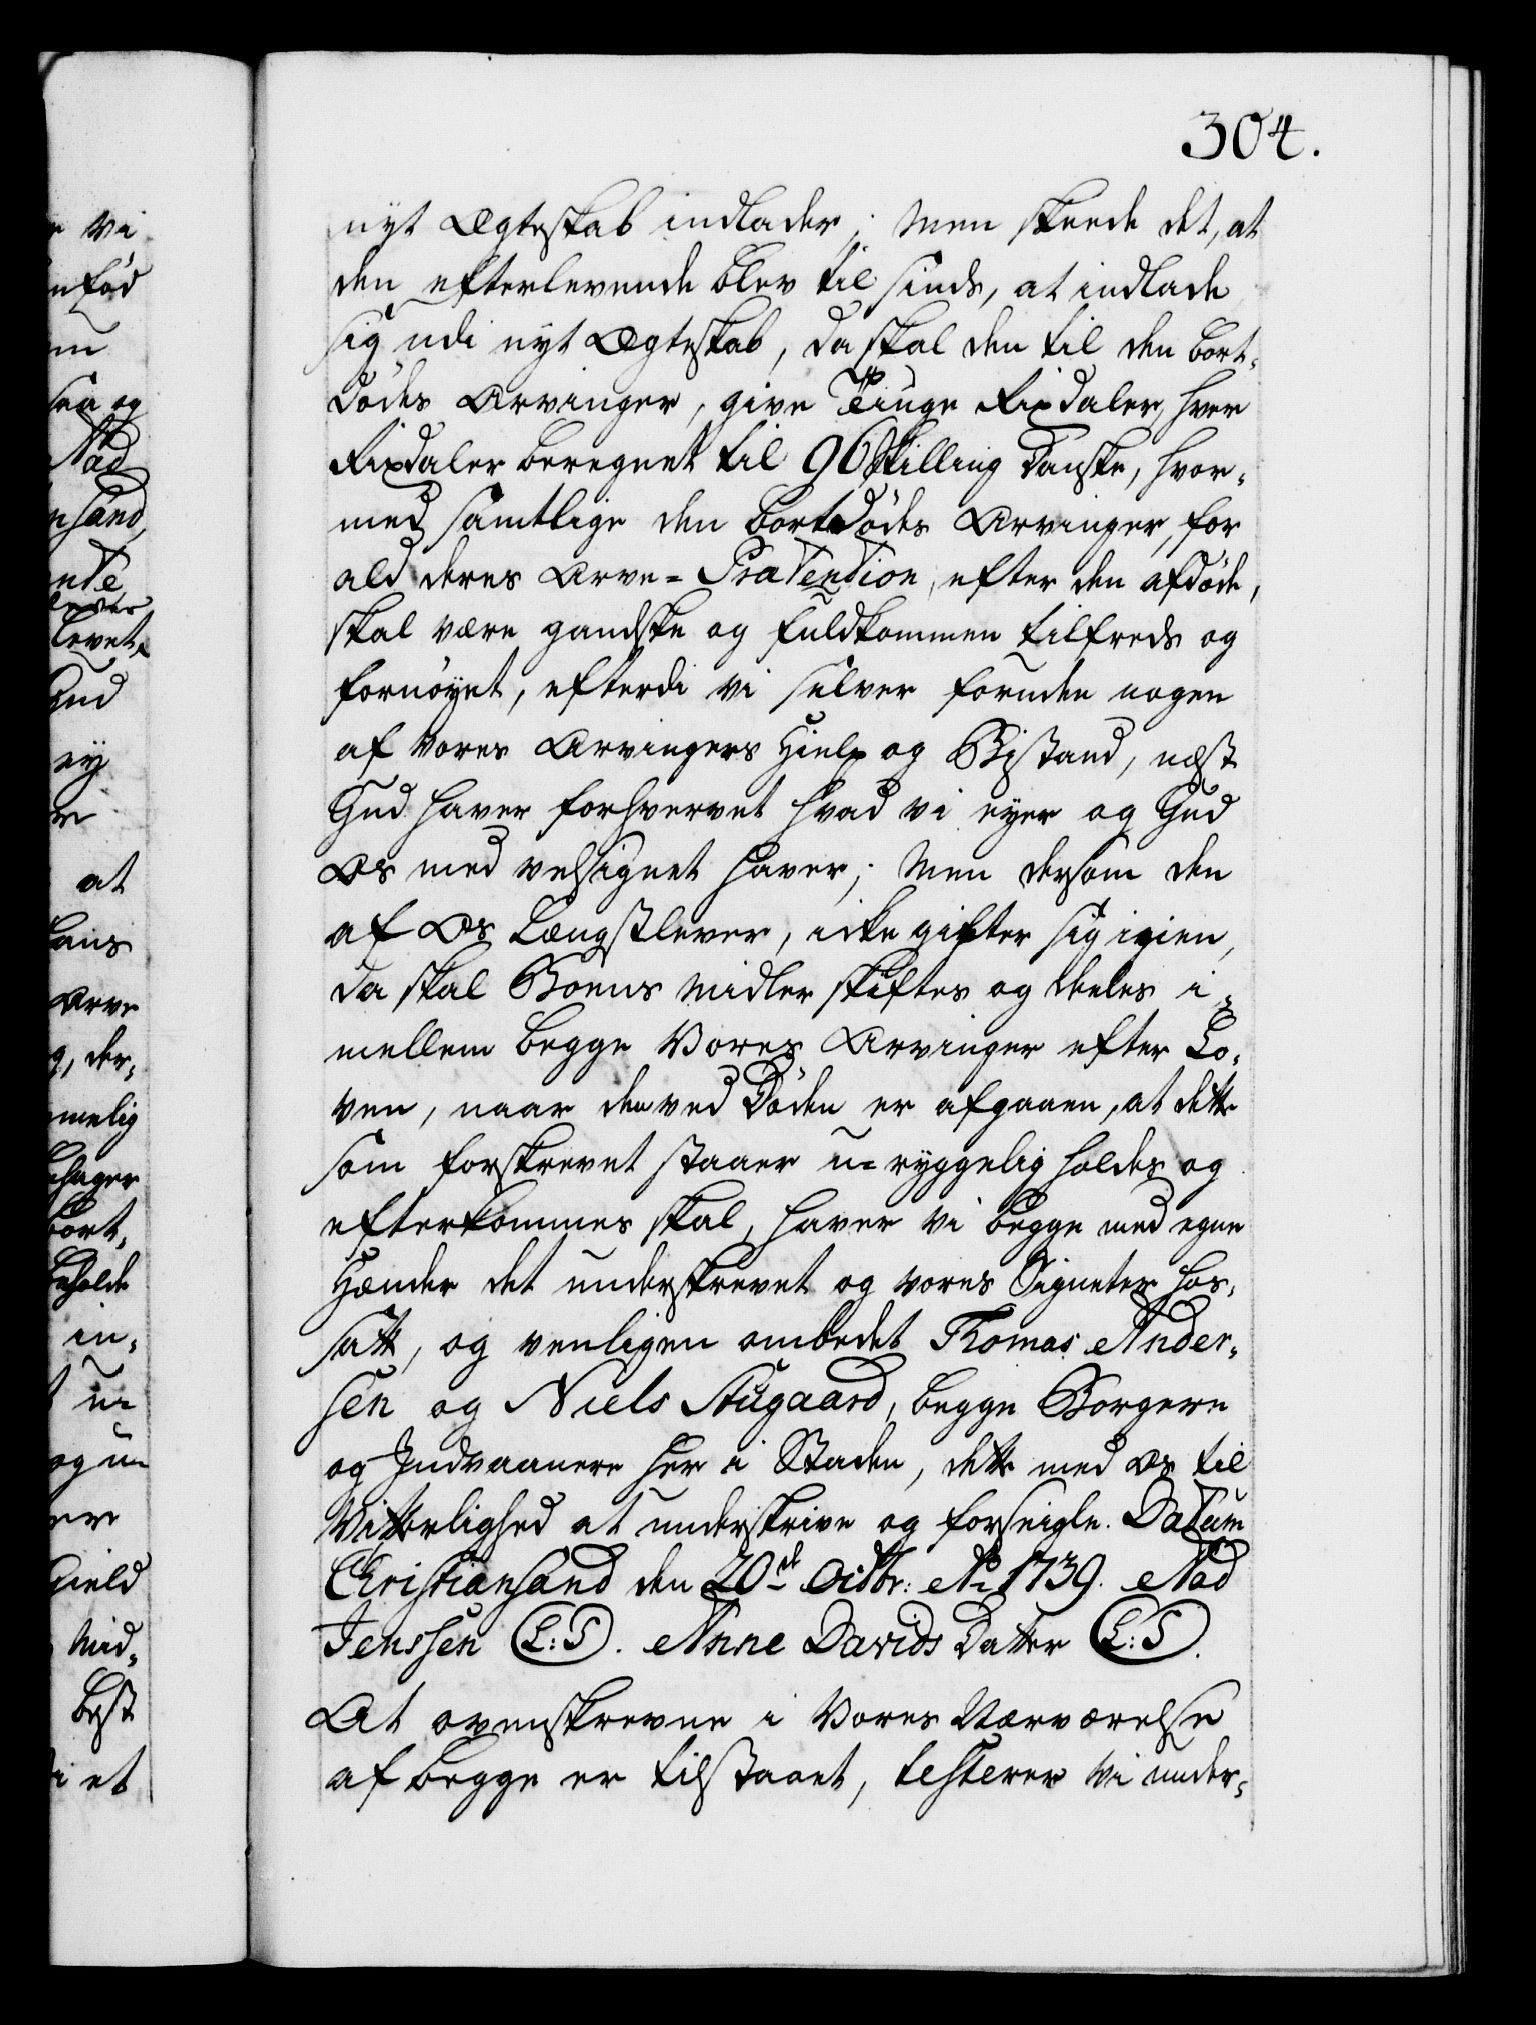 304.
nyt Ægteskab indlader; Men skeede det, at
den efterlevende blev til sinds, at indlade
sig udi nyt Ægteskab, da skal den til den bort-
dödes Arvinger, give Tiuge Rixdaler, hver
Rixdaler beregnet til 96 Skilling Danske, hvor-
med samtlige den bortdödes Arvinger, for
ald deres Arve-Prætention, efter den afdöde,
skal være gandske og fuldkommen tilfreds og
fornöyet, efterdi vi selver foruden nogen
af Vores Arvingers Hielp og Bistand, næst
Gud haver forhvervet hvad vi eyer og Gud
Os med velsignet haver; Men dersom den
af Os længstlever, icke gifter sig igien,
da skal Boens Midler skiftes og deeles i-
mellem begge Vores Arvinger efter Lo-
ven, naar den ved Döden er afgaaen, at dette
som forskrevet staaer u-ryggelig holdes og
efterkommes skal, haver vi begge med egne
Hænder det underskrevet og vores Signeter hos-
satt, og venligen ombedet Thomas Ander-
sen og Niels Augaard, begge Borgere
og Indvaanere her i Staden, dette med Os til
Vitterlighed at underskrive og forseigle. Datum
Christiansand den 20de Octbr: Ao 1739. Aad
Jenssen L:S. Anne Davids Datter L:S.
At ovenskrevne i Vores Nærværelse
af begge er tilstaaet, testerer Vi under-